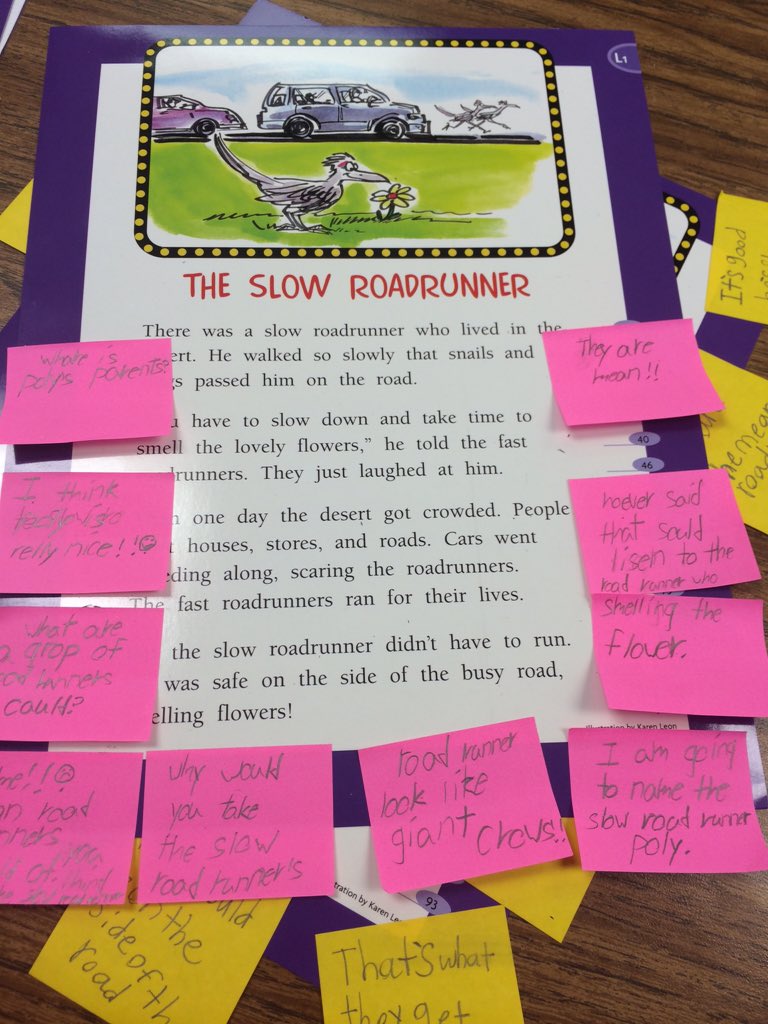 L1
THE SLOW ROADRUNNER
There was a slow roadrunner who lived in the
ert. He walked so slowly that snails and
gs passed him on the road.
u have to slow down and take time to
smell the lovely flowers,” he told the fast
drunners. They just laughed at him.
n one day the desert got crowded. People
t houses, stores, and roads. Cars went
eding along, scaring the roadrunners.
The fast roadrunners ran for their lives.
the slow roadrunner didn’t have to run.
was safe on the side of the busy road,
elling flowers!
40
46
Illustration by Karen Leon
where is
polys parents?
I think
relly nice!!
what are
a grop of
ood runners
could?
me!!
an road
nners
why would
you take
the slow
road runner's
road runner
look like
giant crows!!
I am going
to name the
slow road runner
poly.
They are
mean!!
hoever said
that sould
lisen to the
road runner who
smelling the
flower.
It's good
road
ould
en the
side of th
road
tration by Karen Le
93
That's what
they get